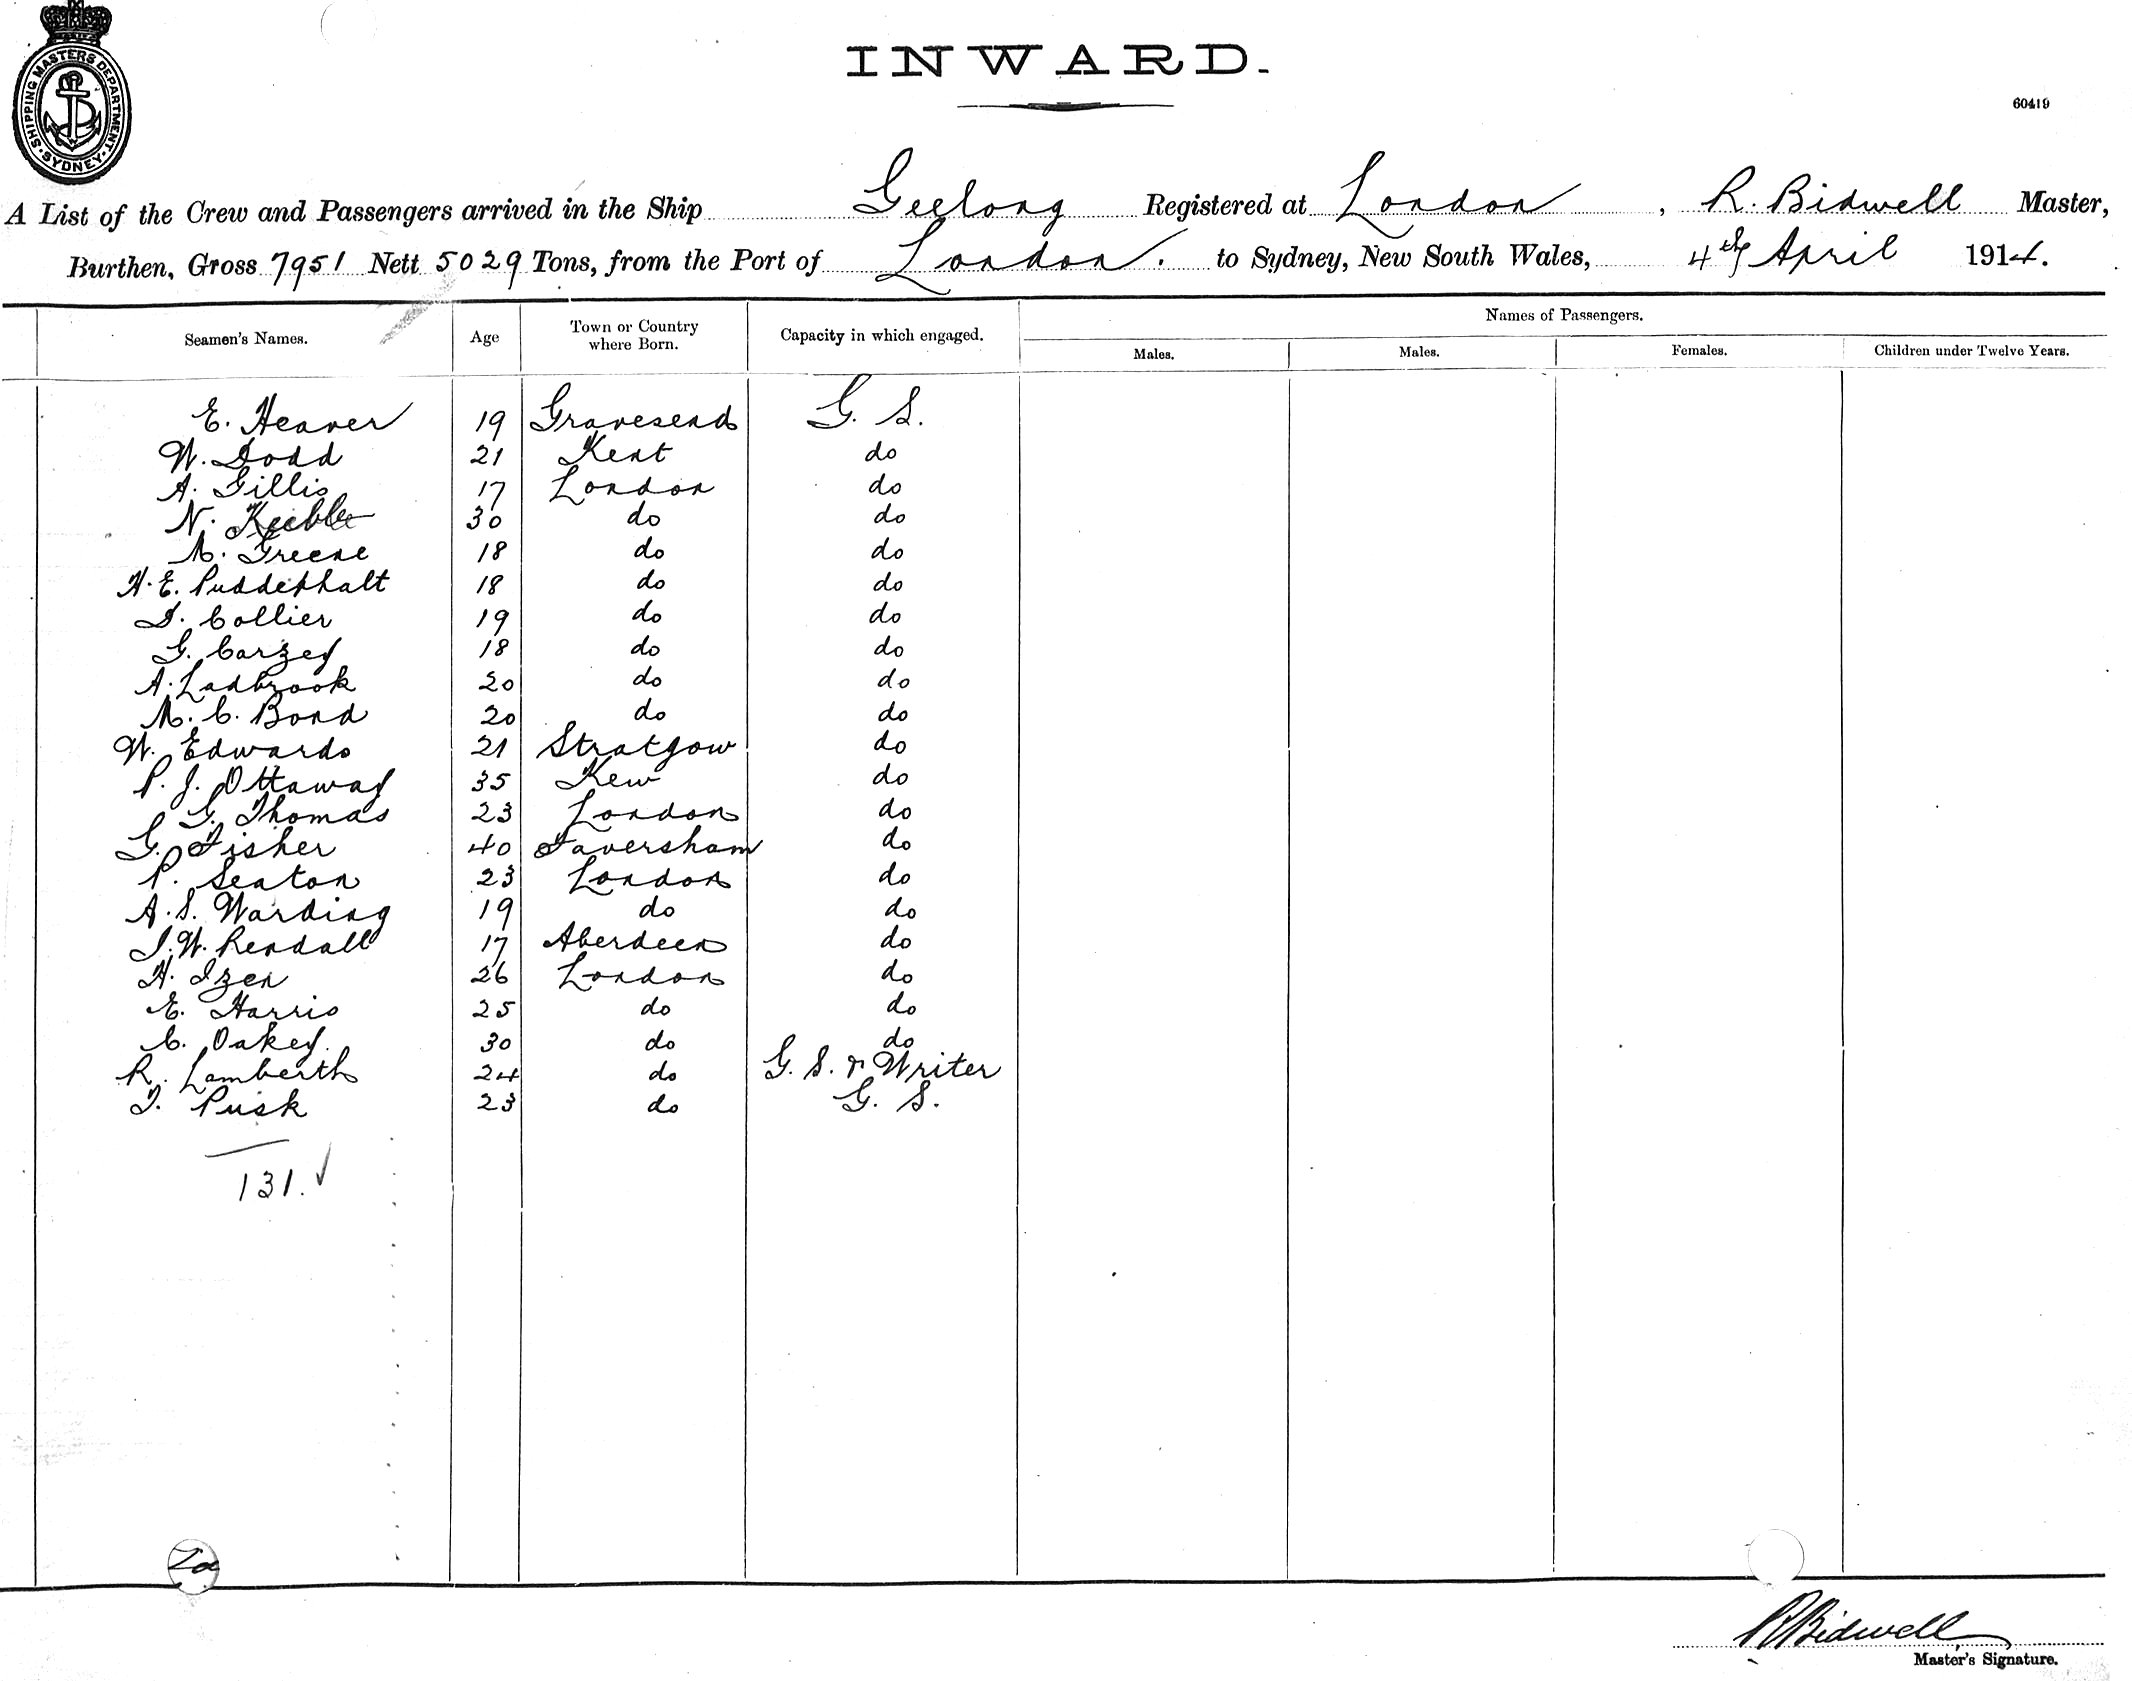 SHIPPING MASTERS DEPARTMENT · SYDNEY ·
INWARD.
60419
A List of the Crew and Passengers arrived in the Ship Geelong Registered at London, R. Bidwell Master,
Burthen, Gross 7951 Nett 5029 Tons, from the Port of London. to Sydney, New South Wales, 4th April 1914.
Seamen's Names. Age Town or Country where Born. Capacity in which engaged. Names of Passengers.
Males. Males. Females. Children under Twelve Years.
E. Heaver 19 Gravesend G. S.
W. Dodd 21 Kent do
A. Gillis 17 London do
N. Keeble 30 do do
M. Greene 18 do do
H. E. Puddephatt 18 do do
D. Collier 19 do do
G. Carzey 18 do do
A. Ladbrook 20 do do
M. C. Bond 20 do do
W. Edwards 21 do
P. J. Ottaway 35 Kew do
G. Thomas 23 London do
G. Fisher 40 Faversham do
P. Seaton 23 London do
A. S. Warding 19 do do
J. W. Rendall 17 Aberdeen do
H. Izen 26 London do
E. Harris 25 do do
C. Oakey. 30 do do
R. Lamberth 24 do G. S. & Writer
Pusk 23 do G. S.
131. ✓
R Bidwell
Master's Signature.